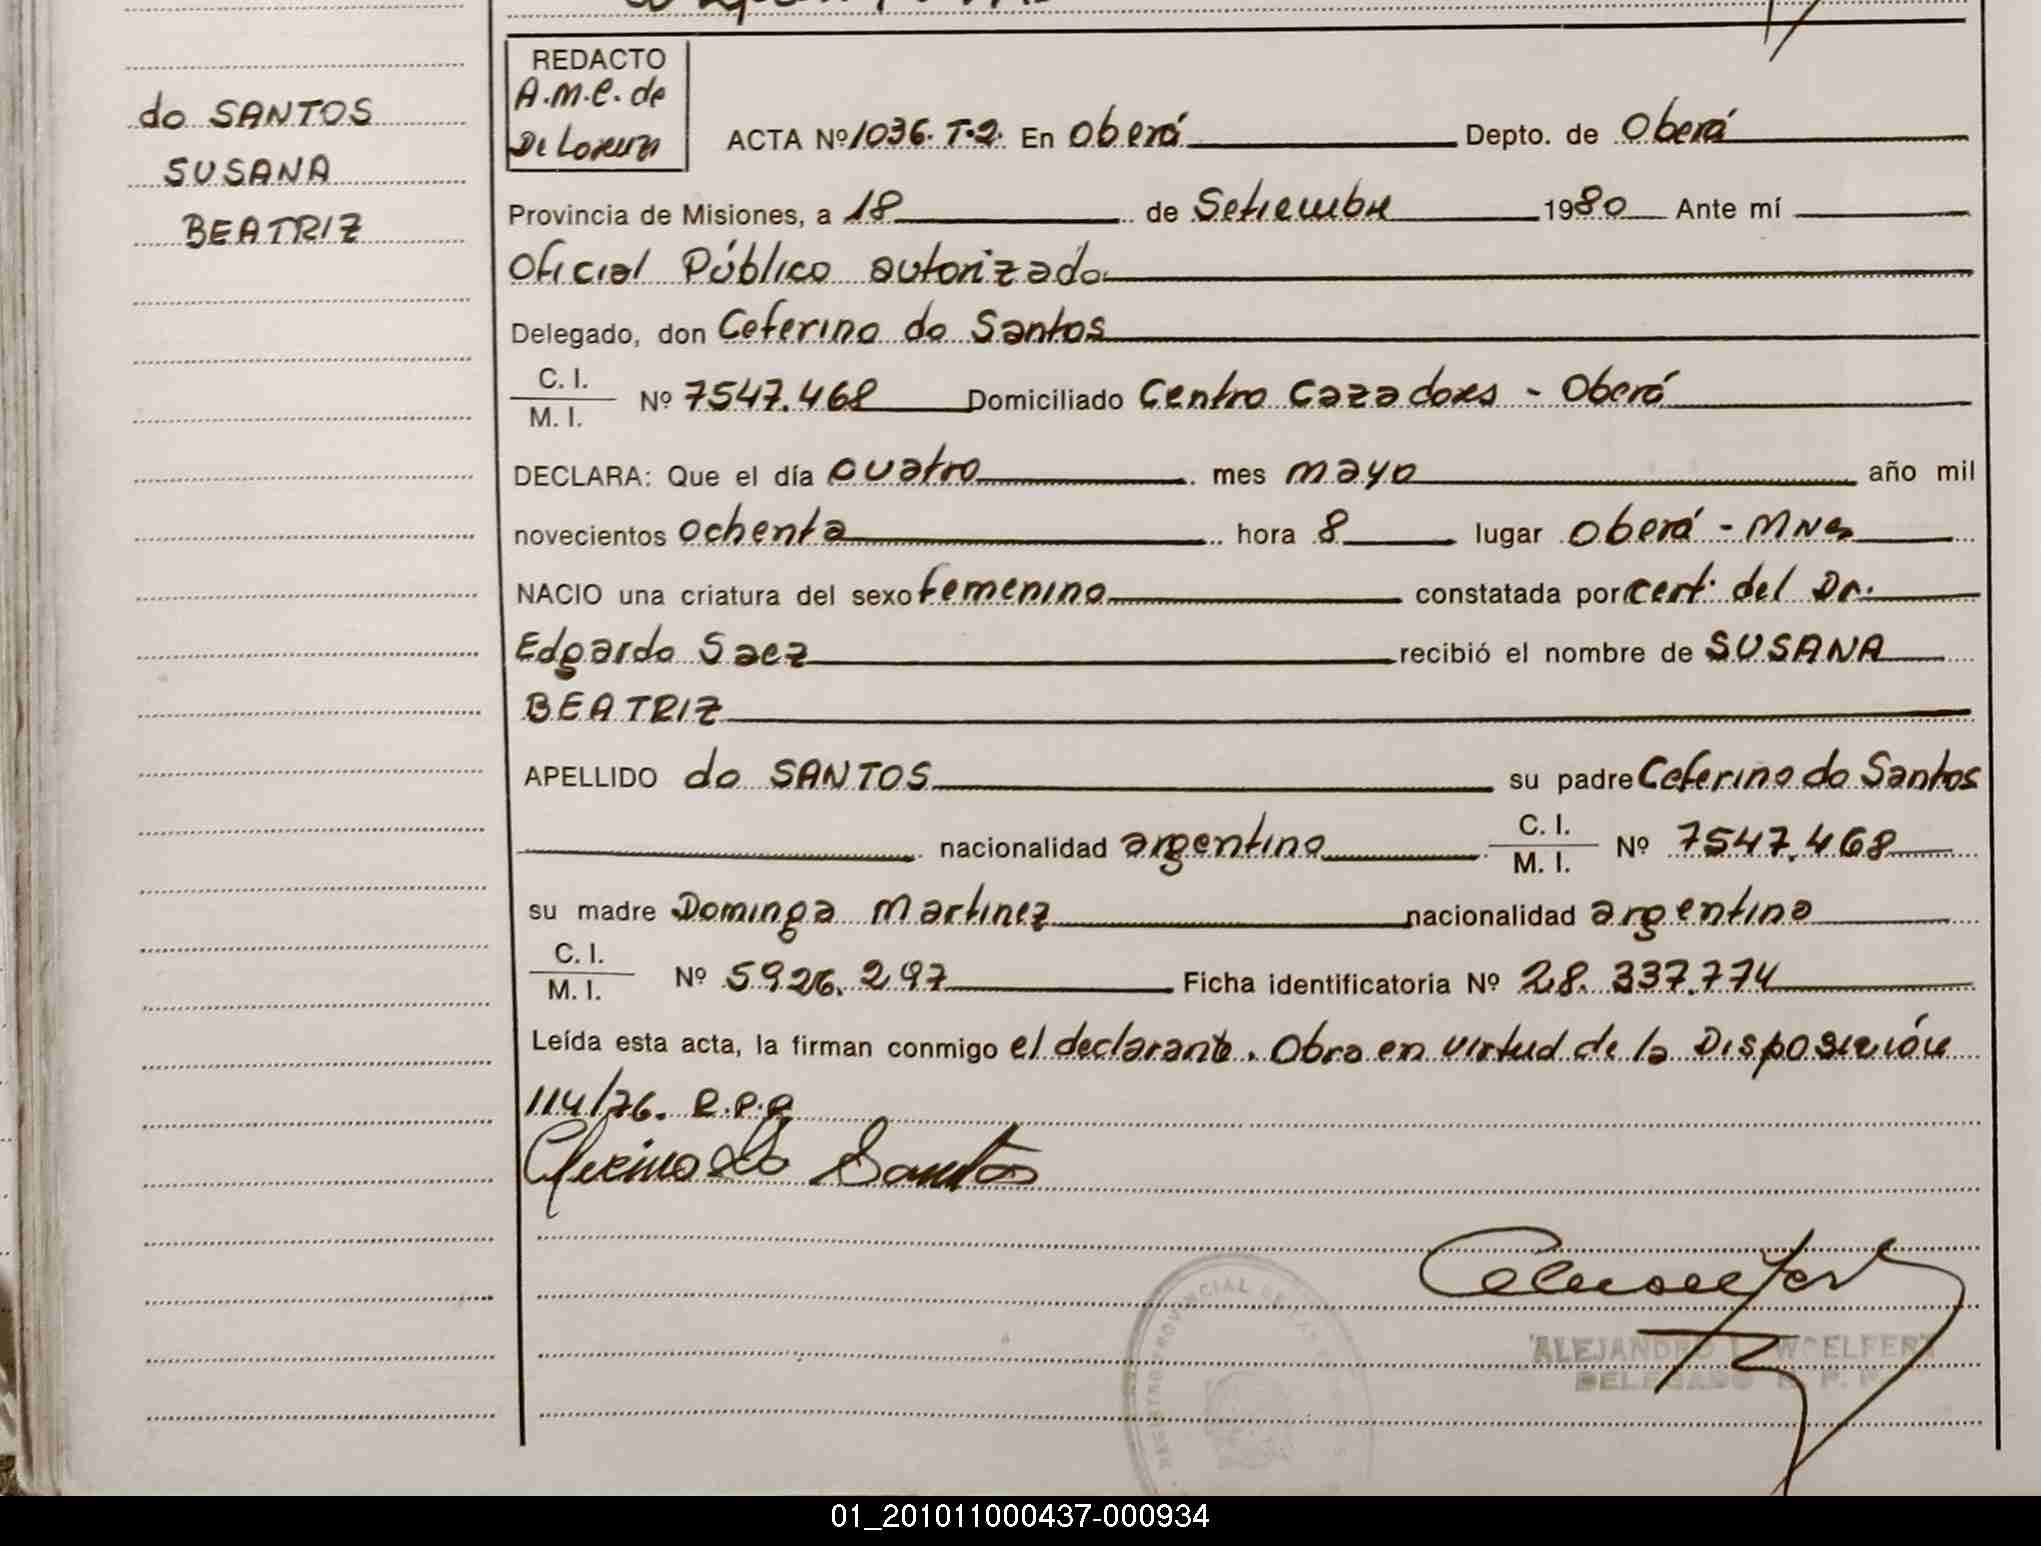 do SANTOS
SUSANA
BEATRIZ
REDACTO
A.M.C. de
Di Lorenzi
ACTA Nº 1036. T.2. En Oberá Depto. de Oberá
Provincia de Misiones, a 18 de Setiembre 1980 Ante mí
Oficial Público autorizado
Delegado, don Ceferino do Santos
C. I.
M. I. Nº 7547.468 Domiciliado Centro Cazadores - Oberá
DECLARA: Que el día cuatro mes mayo año mil
novecientos ochenta hora 8 lugar Oberá - Mnes
NACIO una criatura del sexo femenino constatada por cert. del Dr.
Edgardo Saez recibió el nombre de SUSANA
BEATRIZ
APELLIDO do SANTOS su padre Ceferino do Santos
nacionalidad argentino C. I.
M. I. Nº 7547.468
su madre Dominga Martinez nacionalidad argentina
C. I.
M. I. Nº 5926.297 Ficha identificatoria Nº 28.337.774
Leída esta acta, la firman conmigo el declarante. Obra en virtud de la Disposición
114/76. R.P.P.
Ceferino do Santos
REGISTRO PROVINCIAL DE LAS
ALEJANDRO L. WOELFERT
DELEGADO R. P. P.
01_201011000437-000934